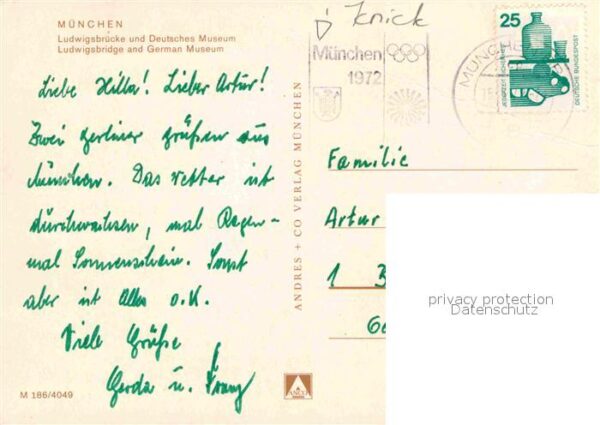 MÜNCHEN
Ludwigsbrücke und Deutsches Museum
Ludwigsbridge and German Museum
Liebe Hilla! Lieber Artur!
Zwei Berliner grüßen aus
München. Das Wetter ist
durchwachsen, mal Regen-
mal Sonnenschein. Sonst
aber ist Alles o.K.
Viele Grüße
Gerda u. Franz
M 186/4049
ANDRES + CO VERLAG MÜNCHEN
ANCO
Knick
München
1972
MÜNCHE
25
JEDERZEIT SICHERHEIT
DEUTSCHE BUNDESPOST
Familie
Artur
1 B
privacy protection
Datenschutz